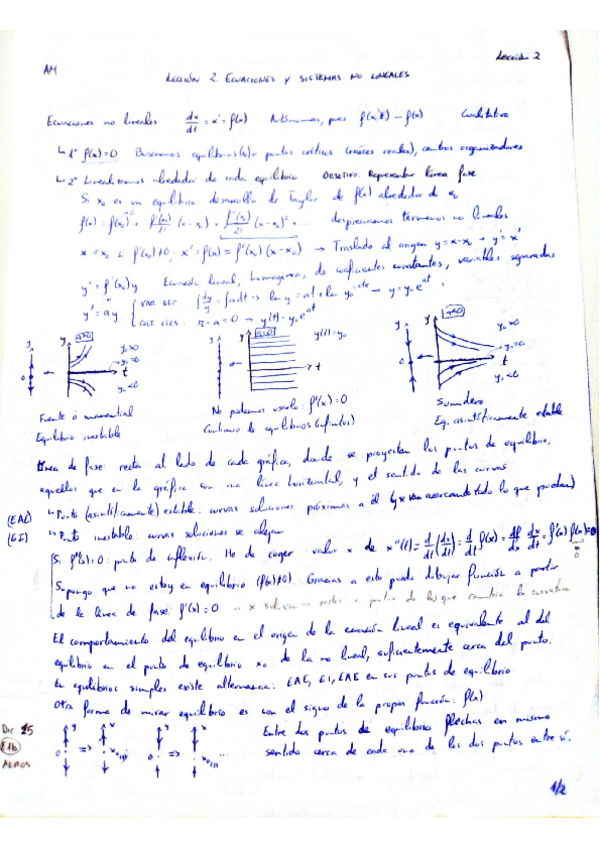 Lección 2
AM
LECCIÓN 2. ECUACIONES Y SISTEMAS NO LINEALES
Ecuaciones no lineales dx/dt = x' = f(x) Autónomas, pues f(x,t) = f(x) Cualitativo
↳ 1º f(x)=0 Buscamos equilibrios(s) o puntos críticos (raíces reales), centros organizadores
↳ 2º Linealizamos alrededor de cada equilibrio Objetivo: Representar línea fase
Si x₀ es un equilibrio desarrollo de Taylor de f(x) alrededor de x₀
f(x) = f(x₀) + f'(x₀)/1! (x-x₀) + f''(x₀)/2! (x-x₀)² + ... despreciamos términos no lineales
x = x₀ si f'(x₀)≠0, x' = f(x) = f'(x₀)(x-x₀) → Traslado al origen y=x-x₀ → y'=x'
y' = f'(x₀)y Ecuación lineal, homogénea, de coeficientes constantes, variables separadas
y' = ay { vari sep: ∫dy/y = ∫adt => ln y = at + ln y₀ → y = y₀e^at
r-a=0 → y(t) = y₀e^at
y y a>0 y₀>0 y₀=0 y₀<0 t 0
y y a=0 y(t)=y₀ t 0
y y a<0 y₀>0 y₀=0 y₀<0 t 0
Fuente o manantial
Equilibrio inestable
No podemos usarlo: f'(x₀)=0
Continuo de equilibrios (infinitos)
Sumidero
Eq. asintóticamente estable
Línea de fase: recta al lado de cada gráfica, donde se proyectan los puntos de equilibrio,
aquellos que en la gráfica son una línea horizontal, y el sentido de las curvas
(EAE) ↳ Punto (asintóticamente) estable: curvas soluciones próximas a él (y se van acercando todo lo que puedan)
(EI) ↳ Punto inestable: curvas soluciones se alejan
Si f'(x)=0: punto de inflexión. He de coger valor x de x''(t) = d/dt (dx/dt) = d/dt f(x) = df/dx dx/dt = f'(x) f(x) = 0
Supongo que no estoy en equilibrio (f(x)≠0). Gracias a esto puedo dibujar función a partir
de la línea de fase f'(x)=0 → x solución a partir de los que cambia la curvatura
El comportamiento del equilibrio en el origen de la ecuación lineal es equivalente al del
equilibrio en el punto de equilibrio x₀ de la no lineal, suficientemente cerca del punto.
En equilibrios simples existe alternancia: EAE, EI, EAE en sus puntos de equilibrio
Otra forma de mirar equilibrio es con el signo de la propia función: f(x)
Dic 15
E1b
AEROS
y => x 0 y => x 0 ...
Entre dos puntos de equilibrio flechas en mismo
sentido cerca de cada uno de los dos puntos entre sí.
1/2